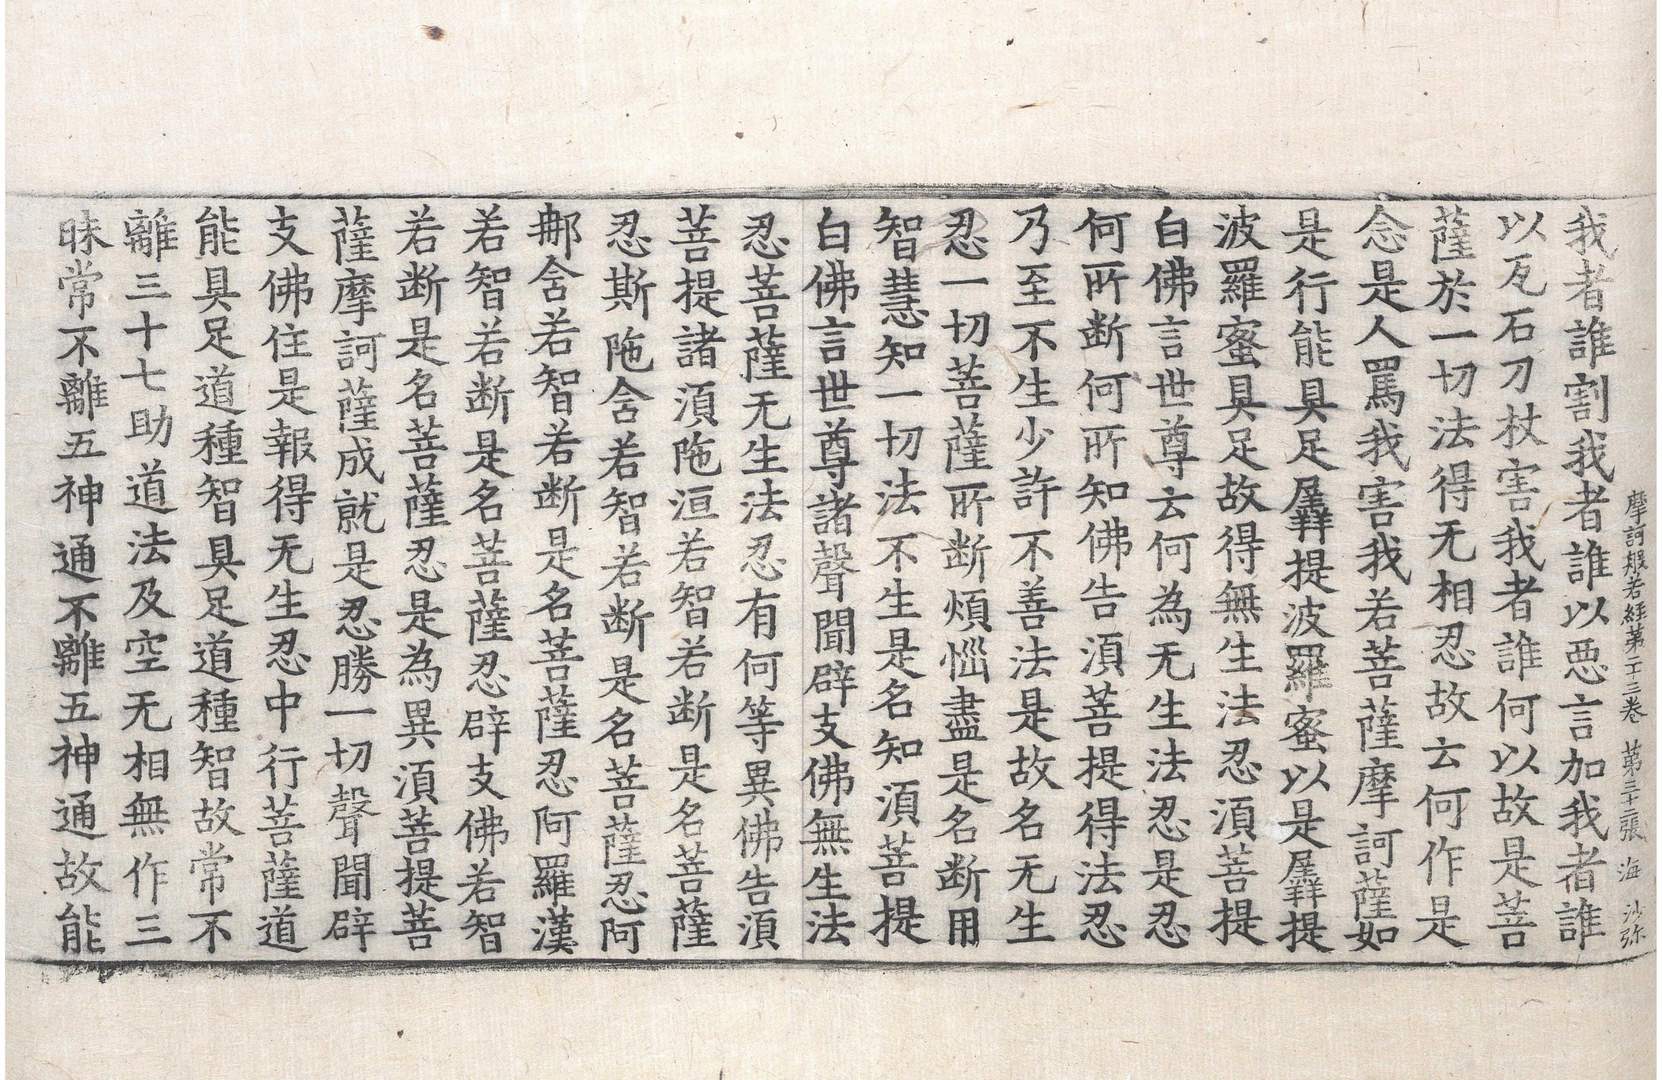 摩訶般若經第二十三卷 第三十二張 海 沙弥
我者誰割我者誰以惡言加我者誰
以瓦石刀杖害我者誰何以故是菩
薩於一切法得无相忍故云何作是
念是人罵我害我若菩薩摩訶薩如
是行能具足羼提波羅蜜以是羼提
波羅蜜具足故得無生法忍須菩提
白佛言世尊云何為无生法忍是忍
何所断何所知佛告須菩提得法忍
乃至不生少許不善法是故名无生
忍一切菩薩所断煩惱盡是名断用
智慧知一切法不生是名知須菩提
白佛言世尊諸聲聞辟支佛無生法
忍菩薩无生法忍有何等異佛告須
菩提諸須陁洹若智若断是名菩薩
忍斯陁含若智若断是名菩薩忍阿
那含若智若断是名菩薩忍阿羅漢
若智若断是名菩薩忍辟支佛若智
若断是名菩薩忍是為異須菩提菩
薩摩訶薩成就是忍勝一切聲聞辟
支佛住是報得无生忍中行菩薩道
能具足道種智具足道種智故常不
離三十七助道法及空无相無作三
昧常不離五神通不離五神通故能